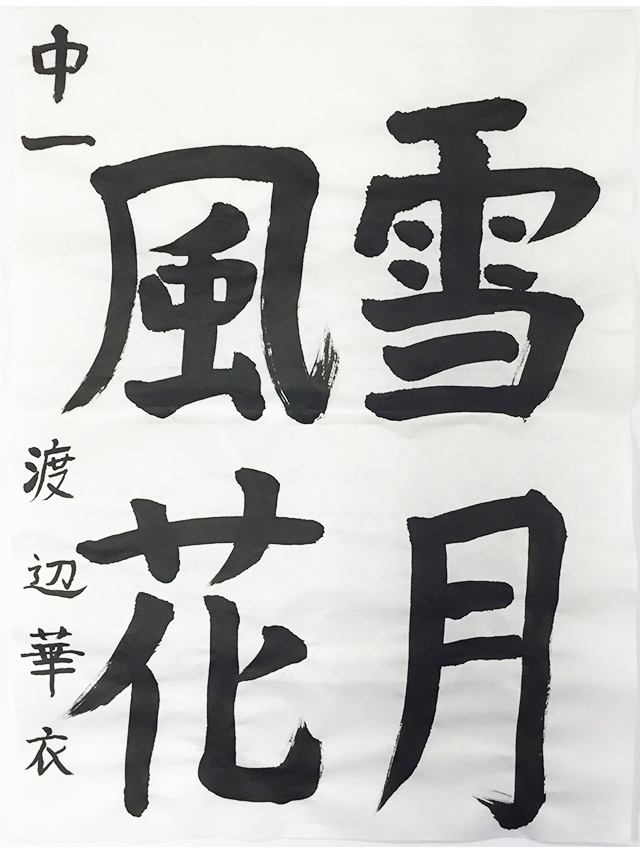 雪月
風花
中一
渡辺華衣